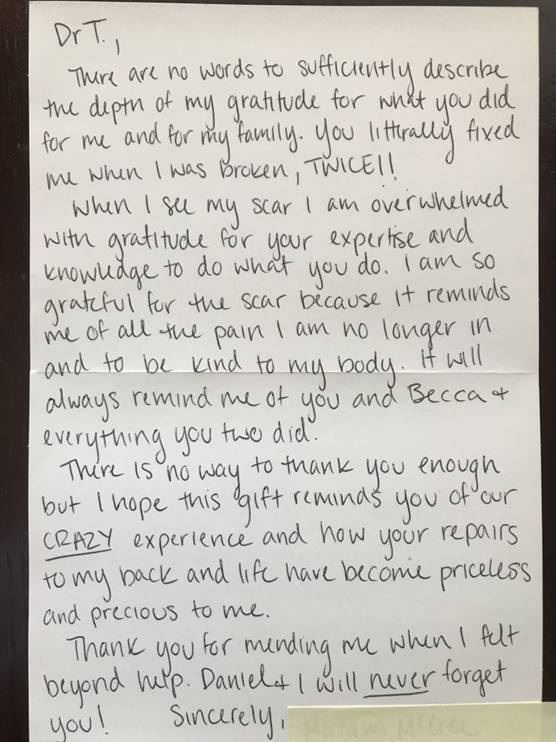 Dr T.,
There are no words to sufficiently describe
the depth of my gratitude for what you did
for me and for my family. You litterally fixed
me when I was broken, TWICE!!
When I see my scar I am overwhelmed
with gratitude for your expertise and
knowledge to do what you do. I am so
grateful for the scar because it reminds
me of all the pain I am no longer in
and to be kind to my body. It will
always remind me of you and Becca +
everything you two did.
There is no way to thank you enough
but I hope this gift reminds you of our
CRAZY experience and how your repairs
to my back and life have become priceless
and precious to me.
Thank you for mending me when I felt
beyond help. Daniel + I will never forget
you! Sincerely,